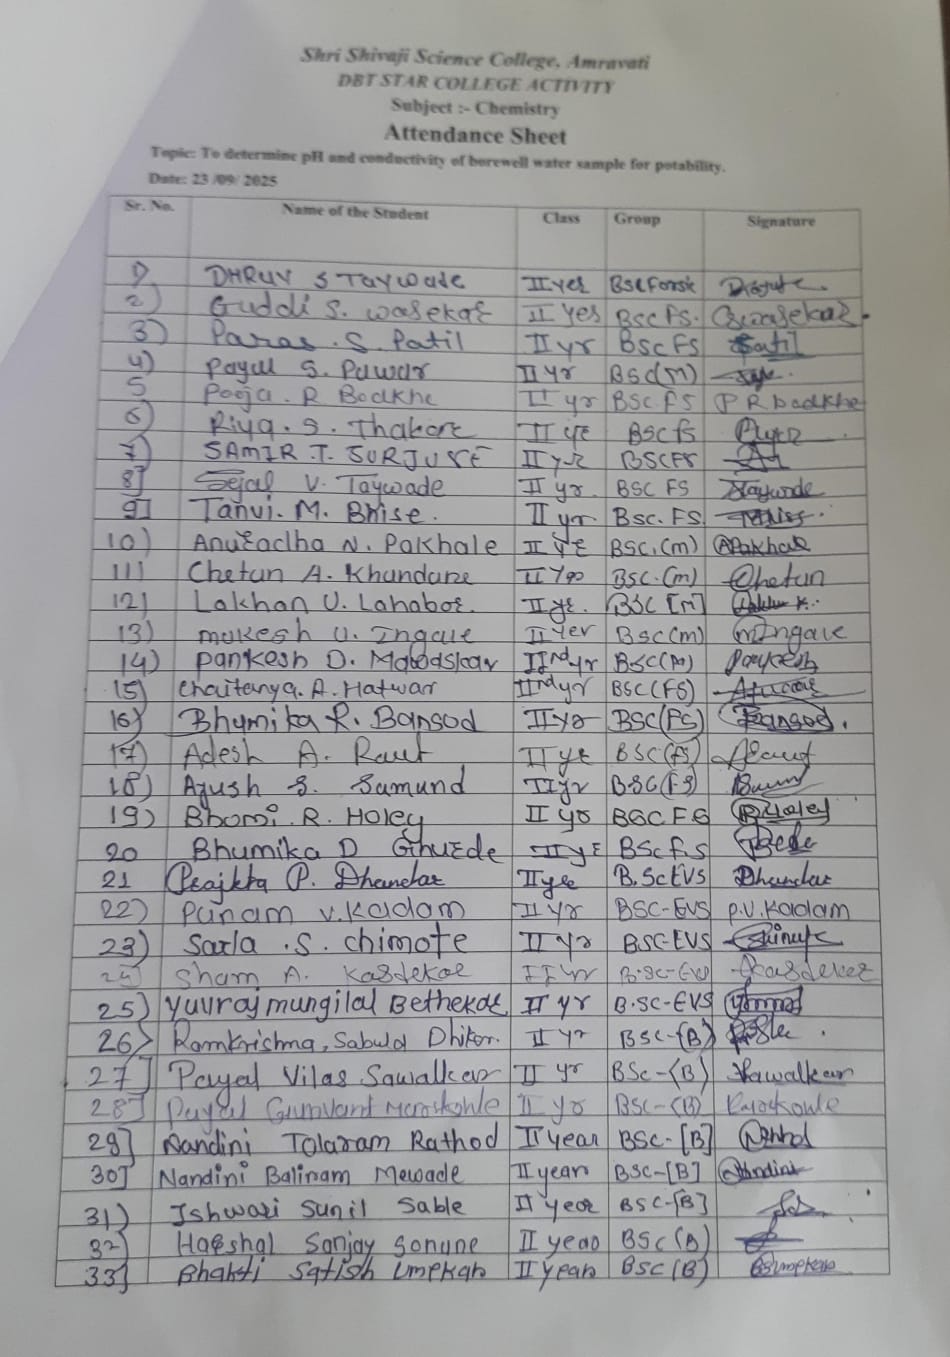 Shri Shivaji Science College, Amravati
DBT STAR COLLEGE ACTIVITY
Subject :- Chemistry
Attendance Sheet
Topic: To determine pH and conductivity of borewell water sample for potability.
Date: 23 /09/ 2025
Sr. No. Name of the Student Class Group Signature
1) DHRUV S Taywade II yer BSc Forsk
2) Guddi S. wasekar II Yes BSc FS. Gswasekar.
3) Paras . S. Patil II yr BSC FS Patil
4) Payal S. Pawar II yr BSc(m)
5 Pooja . R Bodkhe II yr BSC FS P R badkhe
6) Riya . S. Thakare II yr BSc fs
7) SAMIR T. SURJUSE II yr BSCFS
8] Sejal V. Taywade II yr. BSC FS Staywade
9] Tanvi. M. Bhise. II yr Bsc. FS
10) Anuradha N. Pakhale II YR BSC.(m) APakhale
11] Chetan A. Khandare II Yr BSC.(m) Chetan
12] Lakhan U. Lahabor. II yr. BSC [M]
13) mukesh U. Ingale II yer BSC(m) mIngale
14) Pankesh D. IInd yr BSC(M) Pankesh
15) Chaitanya. A. Hatwar IInd yr BSC(FS)
16) Bhumika R. Bansod II yr BSC(FS) Bansod.
17) Adesh A. Raut II yr BSC(FS) ARaut
18) Ayush S. Samund II yr B.SC(FS)
19) Bhomi. R. Holey II yr BSC FS BHoley
20 Bhumika D Ghurde II yr BSc F.S
21 Prajkta P. Dhandar II yr B.Sc EVS Dhandar
22) Punam v. Kadam II yr BSC-EVS P.V. Kadam
23) Sarla . S. Chimote II yr B.SC-EVS
24) Sham A. Kasdekar II yr B.SC-EVS Kasdekar
25) Yuvraj mungilal Bethekar II yr B.SC-EVS
26) Ramkrishna, Sabula Dhikar. II yr BSC-(B)
27] Payal Vilas Sawalkar II yr BSc-(B) Sawalkar
28] Payal Gunvant II yr BSC-(B)
29] Nandini Tolaram Rathod II year BSC-[B]
30] Nandini Baliram Mewade II year BSC-[B]
31) Ishwari Sunil Sable II year BSC-[B]
32) Harshal Sanjay Sonune II year BSC (B)
33] Bhakti Satish Umpkar II year BSC (B) BSUmpkar